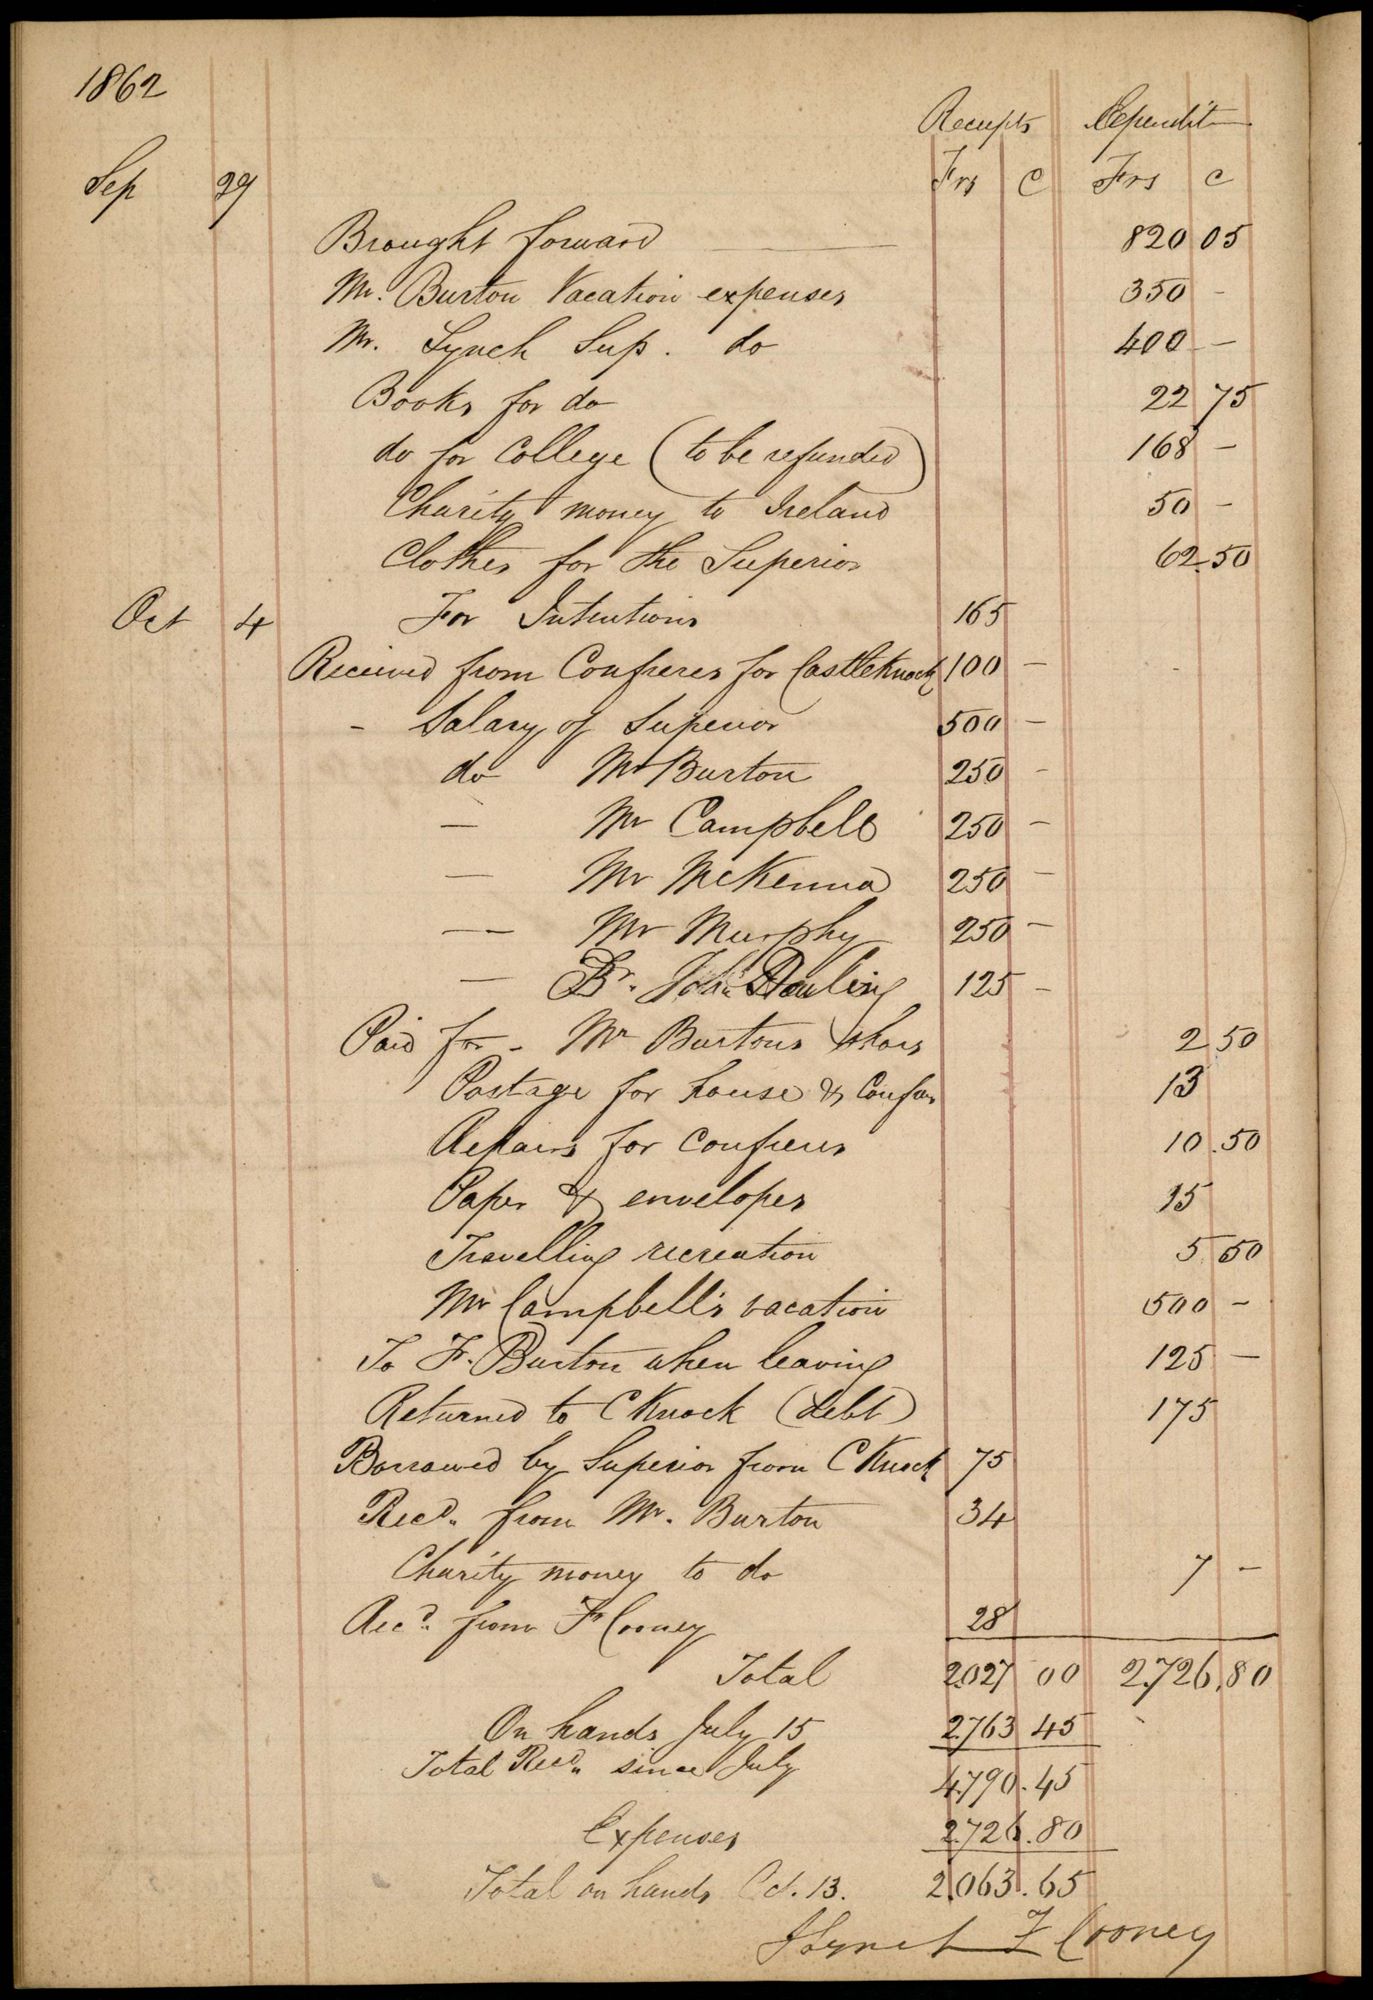 1862
Receipts Expendit
Sep 29 Frs C Frs C
Brought forward 820 05
Mr. Burton Vacation expenses 350 -
Mr. Lynch Sup. do 400 -
Books for do 22 75
do for College (to be refunded) 168 -
Charity money to Ireland 50 -
Clothes for the Superior 62.50
Oct 4 For Intentions 165
Received from Confreres for Castleknock 100 -
- Salary of Superior 500 -
do Mr Burton 250 -
- Mr Campbell 250 -
- Mr McKenna 250 -
- - Mr Murphy 250 -
- Br. John Dowling 125 -
Paid for - Mr Burtons shoes 2 50
Postage for house & Confres 13
Repairs for confreres 10.50
Paper & envelopes 15
Travelling recreation 5.50
Mr Campbell's vacation 500 -
To F. Burton when leaving 125 -
Returned to CKnock (debt) 175
Borrowed by Superior from CKnock 75
Recd. from Mr. Burton 34
Charity money to do 7 -
Recd. from F Cooney 28
Total 2027 00 2,726.80
On hands July 15 2763 45
Total Recd. since July 4790.45
Expenses 2726.80
Total on hands Oct. 13. 2,063.65
J Lynch F Cooney